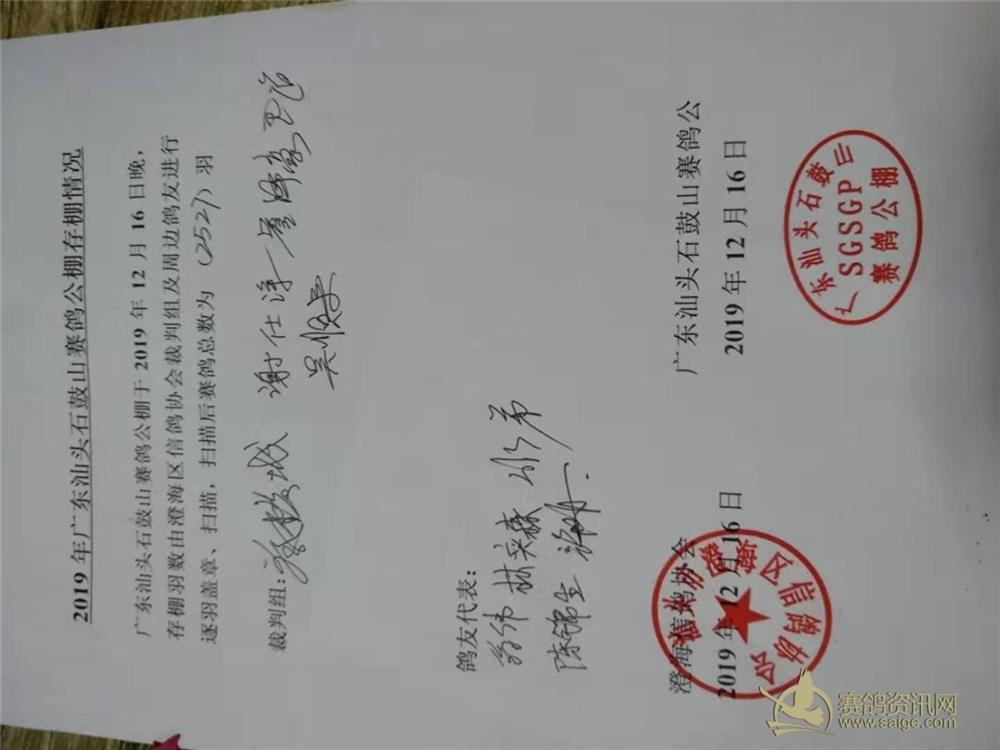 2019年广东汕头石鼓山赛鸽公棚存棚情况
广东汕头石鼓山赛鸽公棚于 2019 年 12 月 16 日晚，
存棚羽数由澄海区信鸽协会裁判组及周边鸽友进行
逐羽盖章、扫描，扫描后赛鸽总数为（2527）羽
裁判组：
谢仕淳
鸽友代表：
林奕森
陈锦生
澄海信鸽协会
2019 年 12 月 16 日
广东汕头石鼓山赛鸽公
2019 年 12 月 16 日
广东汕头石鼓山
SGSGP
赛鸽公棚
赛鸽资讯网
www.saige.com